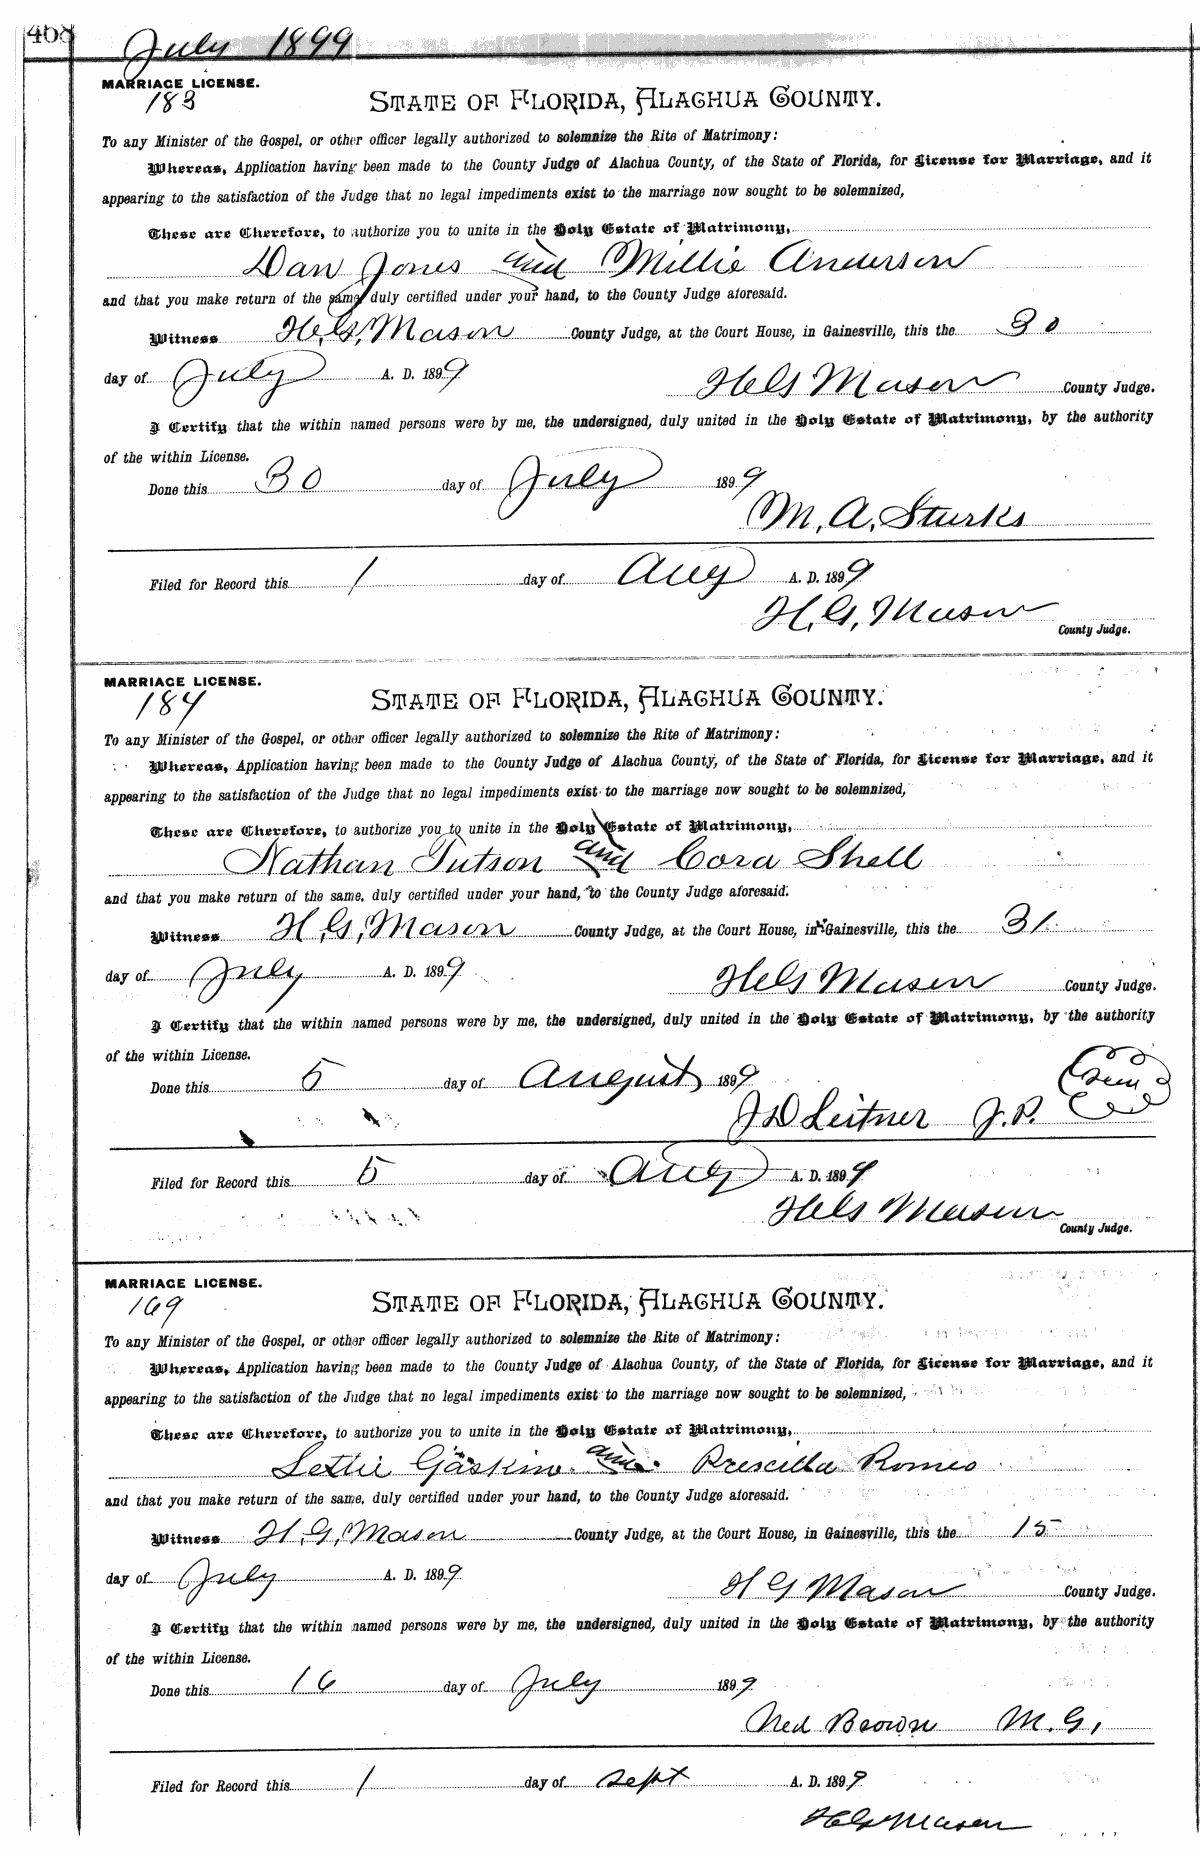 468
July 1899
MARRIAGE LICENSE.
183
STATE OF FLORIDA, ALACHUA COUNTY.
To any Minister of the Gospel, or other officer legally authorized to solemnize the Rite of Matrimony:
Whereas, Application having been made to the County Judge of Alachua County, of the State of Florida, for License for Marriage, and it
appearing to the satisfaction of the Judge that no legal impediments exist to the marriage now sought to be solemnized,
These are Therefore, to authorize you to unite in the Holy Estate of Matrimony,
Dan Jones and Millie Anderson
and that you make return of the same, duly certified under your hand, to the County Judge aforesaid.
Witness H.G. Mason County Judge, at the Court House, in Gainesville, this the 30
day of July A. D. 1899 H G Mason County Judge.
I Certify that the within named persons were by me, the undersigned, duly united in the Holy Estate of Matrimony, by the authority
of the within License.
Done this 30 day of July 1899
M. A. Sturks
Filed for Record this 1 day of Aug A. D. 1899
H. G. Mason
County Judge.
MARRIAGE LICENSE.
184
STATE OF FLORIDA, ALACHUA COUNTY.
To any Minister of the Gospel, or other officer legally authorized to solemnize the Rite of Matrimony:
Whereas, Application having been made to the County Judge of Alachua County, of the State of Florida, for License for Marriage, and it
appearing to the satisfaction of the Judge that no legal impediments exist to the marriage now sought to be solemnized,
These are Therefore, to authorize you to unite in the Holy Estate of Matrimony,
Nathan Tutson and Cora Shell
and that you make return of the same, duly certified under your hand, to the County Judge aforesaid.
Witness H. G. Mason County Judge, at the Court House, in Gainesville, this the 31
day of July A. D. 1899 H G Mason County Judge.
I Certify that the within named persons were by me, the undersigned, duly united in the Holy Estate of Matrimony, by the authority
of the within License.
Done this 5 day of August 1899
J D Leitner J. P.
Filed for Record this 5 day of Aug A. D. 1899
H G Mason
County Judge.
MARRIAGE LICENSE.
169
STATE OF FLORIDA, ALACHUA COUNTY.
To any Minister of the Gospel, or other officer legally authorized to solemnize the Rite of Matrimony:
Whereas, Application having been made to the County Judge of Alachua County, of the State of Florida, for License for Marriage, and it
appearing to the satisfaction of the Judge that no legal impediments exist to the marriage now sought to be solemnized,
These are Therefore, to authorize you to unite in the Holy Estate of Matrimony,
Lettie Gaskin and Prescilla Romeo
and that you make return of the same, duly certified under your hand, to the County Judge aforesaid.
Witness H. G. Mason County Judge, at the Court House, in Gainesville, this the 15
day of July A. D. 1899 H G Mason County Judge.
I Certify that the within named persons were by me, the undersigned, duly united in the Holy Estate of Matrimony, by the authority
of the within License.
Done this 16 day of July 1899
Ned Brown M. G.
Filed for Record this 1 day of Sept A. D. 1899
H G Mason